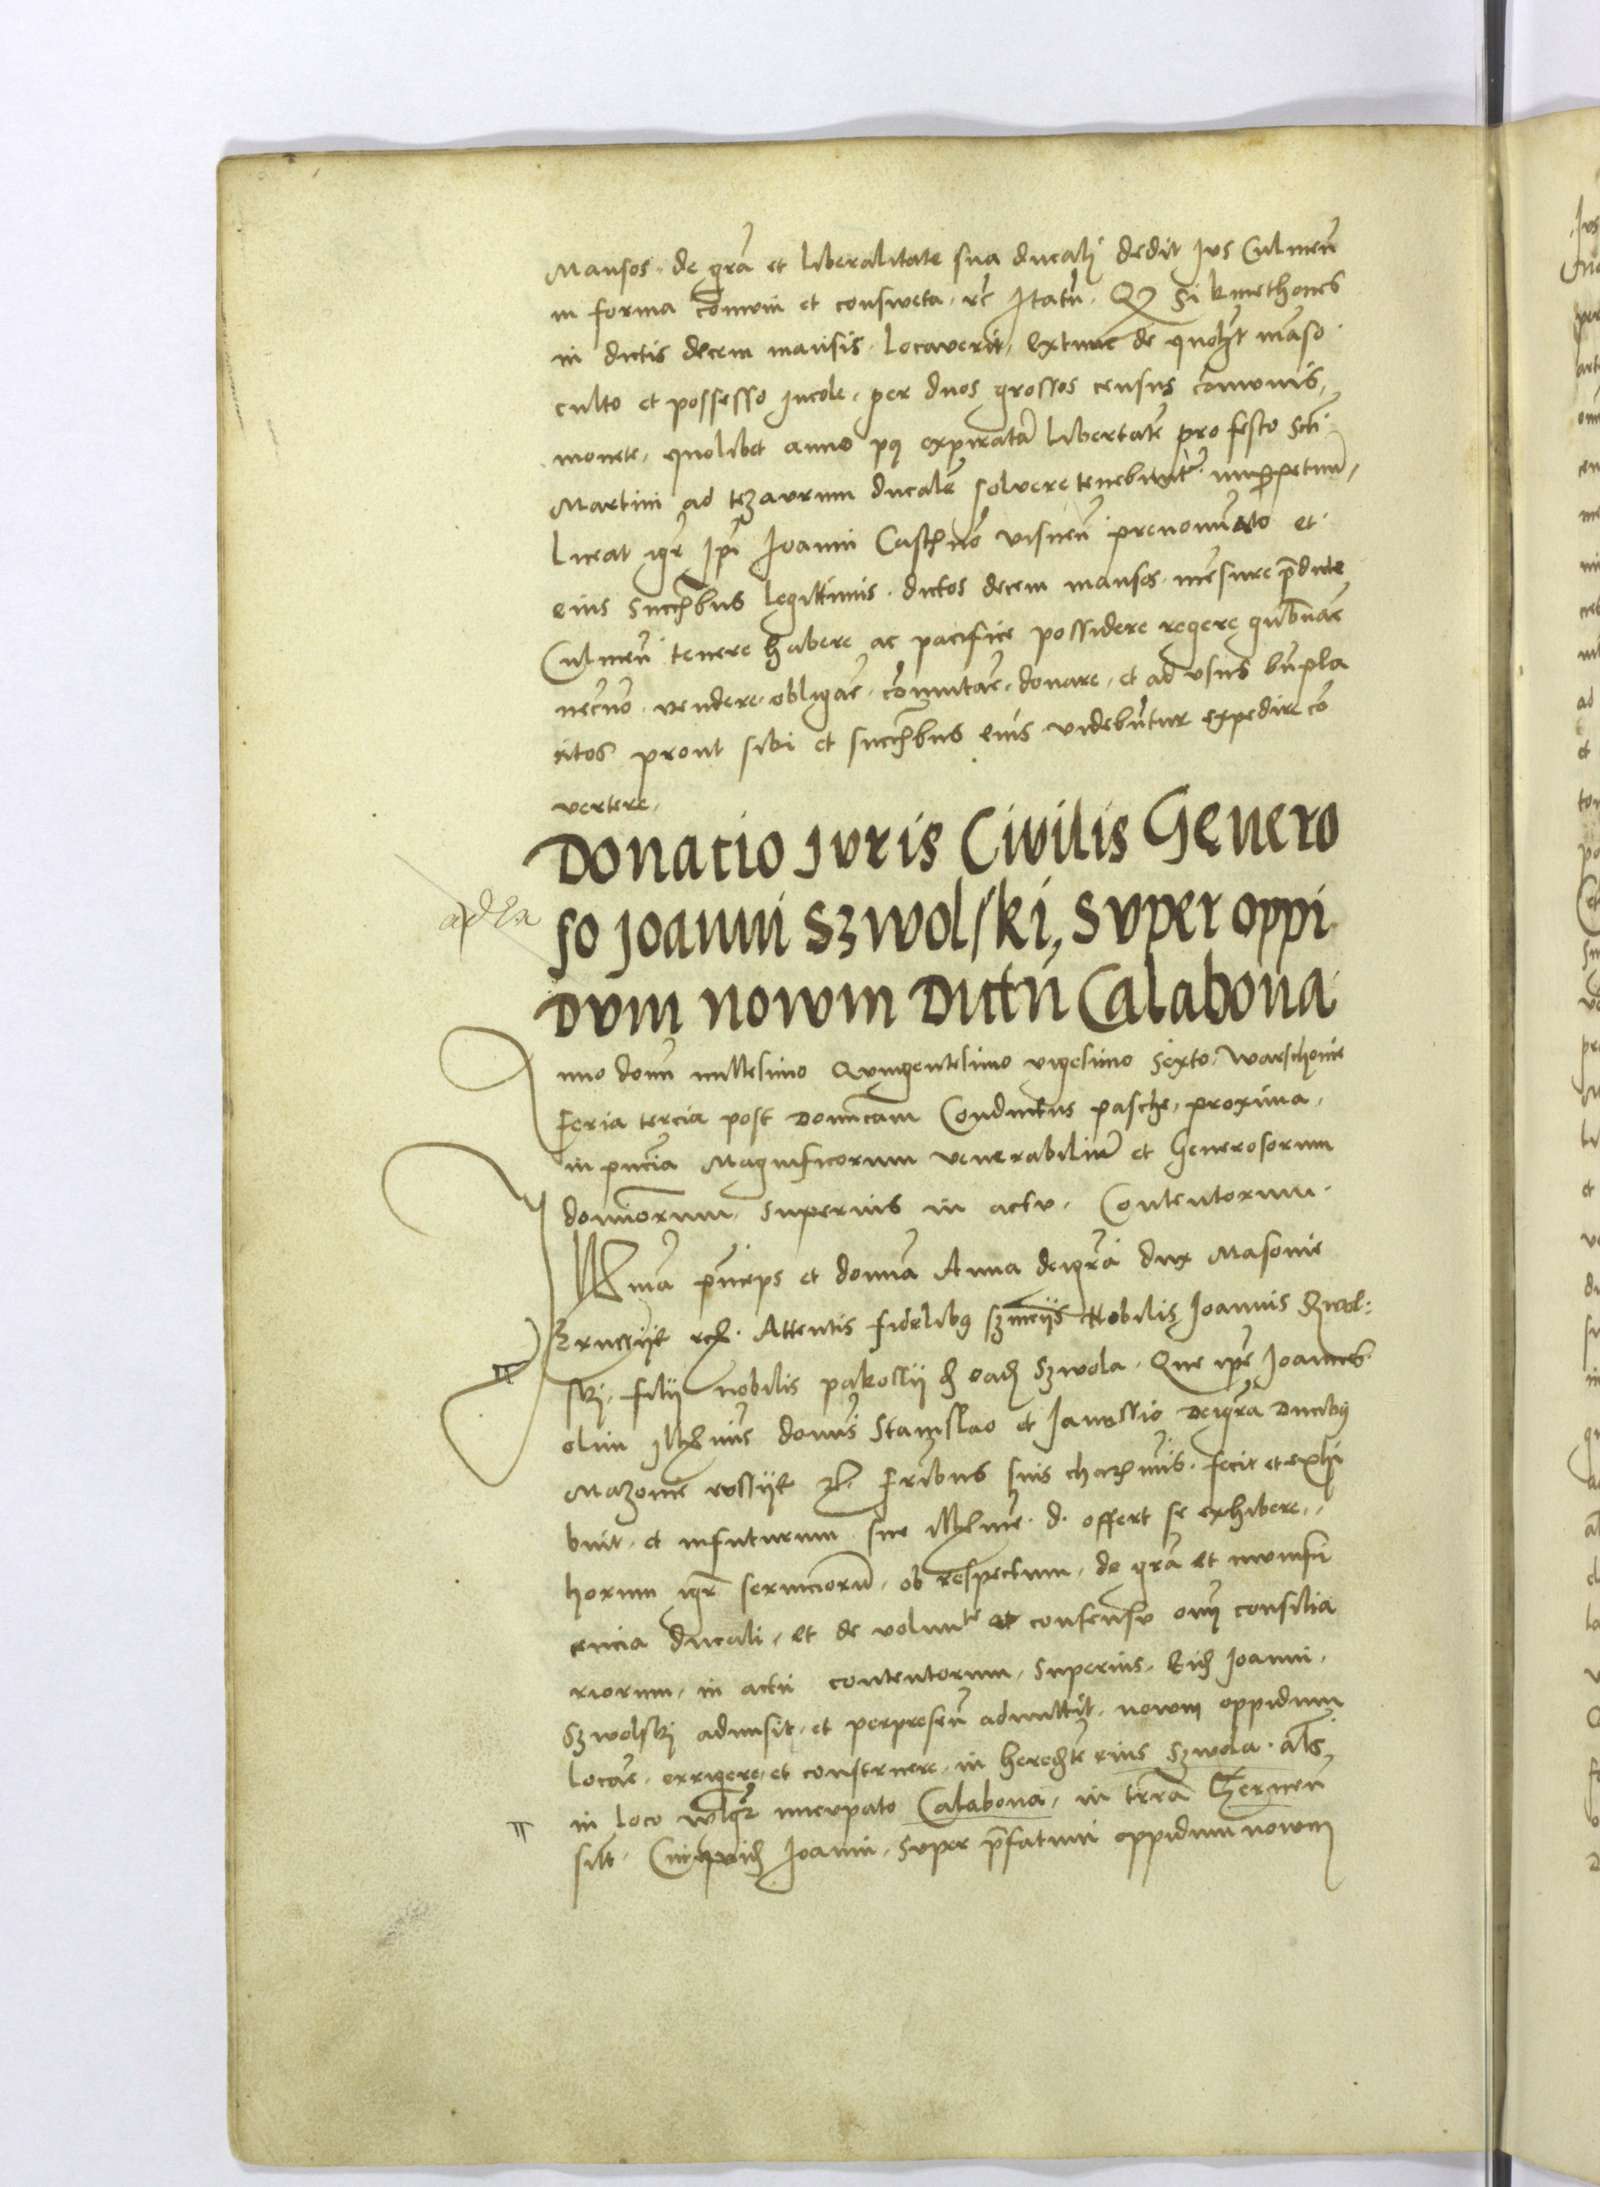 Mansos de grã et liberalitate sua ducali dedit Jus Culmeñ
in forma cõmuni et consweta rc̃ Itatñ Qz si kmethones
in dictis decem mansis locaverit, extunc de quolȝt mãso
culto et possesso incole, per duos grossos census cõmunis,
monete, quolibet anno pq expiratã libertatẽ pro festo Scti
Martini ad tezaurum ducalẽ solvere tenebunt̃ inperpetuũ,
Liceat igr̃ Ipi Joanni visneñ prenominato et
eius succibus legittimis dictos decem mansos mẽsure p̃dicte
Culmeñ tenere habere ac pacifice possidere regere gubnãe
necnõ vendere obligãe cõmutãe, donare, et ad usus bñpla
citos prout sibi et succibus eius videbuntur expedire cõ
vertere,
Donatio Juris Civilis Genero
so Joanni Szwolski, super oppi
dum nowum dictũ Calabona
Anno domi millesimo Quingentesimo vigesimo Sexto, Warschovie
feria tercia post Domicam Conductus pasche, proxima,
in pñcia Magnificorum venerabiliũ et Generosorum
dominorum superius in actu Contentorum
Illma princeps et domina Anna dei grã dux Masovie
Russyẽ rc̃ Attentis fidelibq Nobilis Joannis Szwol:
ski, filii nobilis pakossii d eadẽ Szwola, Que ipẽ Joannes
olim Illmis domis Stanislao et Janussio Dei grã Ducibq
Mazovie russyẽ rc̃ fribus suis charimis fecit et exhi
buit, et infuturum sue Illme d. offert se exhibere,
horum igr̃ serviciorũ, ob respectum, de grã et munifi
cencia ducali, et de volunte et consensu oniũ consilia
riorum, in actu contentorum, superius, Eidẽ Joanni,
Szwolski admisit, et per preseñ admittit, nowm oppidum
locãe, errigere, et construere, in heredte eius Szwola als
in loco wlgr̃ nucupato Calabona, in trra Cerneñ
silt Cui quidẽ Joanni, super p̃fatum oppidum nowm